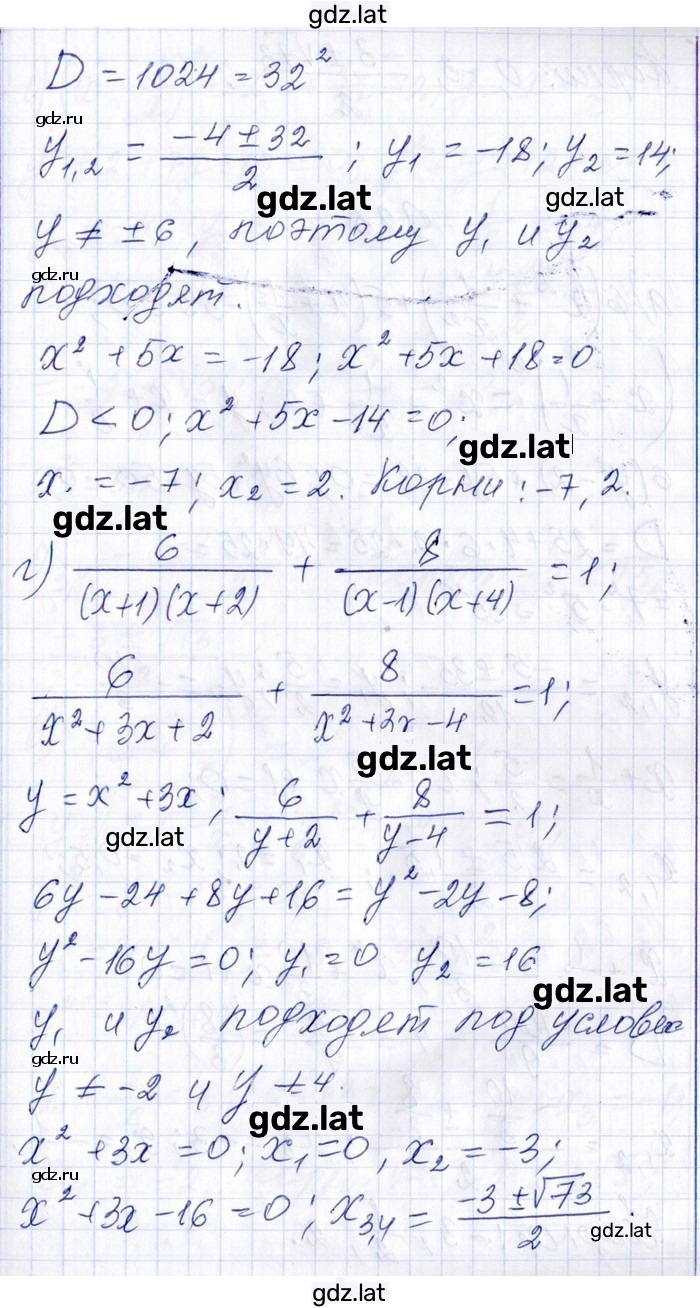 gdz.lat
D = 1024 = 32²
gdz.ru
y₁,₂ = (-4 ± 32)/2 ; y₁ = -18; y₂ = 14;
gdz.lat gdz.lat
y ≠ ±6, поэтому y₁ и y₂
gdz.ru
подходят.
x² + 5x = -18; x² + 5x + 18 = 0
D < 0; x² + 5x - 14 = 0;
gdz.lat
x. = -7; x₂ = 2. Корни: -7, 2.
gdz.lat
г) 6/((x+1)(x+2)) + 8/((x-1)(x+4)) = 1;
6/(x² + 3x + 2) + 8/(x² + 3x - 4) = 1;
gdz.lat
y = x² + 3x; 6/(y+2) + 8/(y-4) = 1;
gdz.lat
6y - 24 + 8y + 16 = y² - 2y - 8;
y² - 16y = 0; y₁ = 0 y₂ = 16
gdz.lat
y₁ и y₂ подходят под условие
gdz.ru
y ≠ -2 и y ≠ 4.
gdz.lat
x² + 3x = 0; x₁ = 0, x₂ = -3;
gdz.ru
x² + 3x - 16 = 0; x₃,₄ = (-3 ± √73)/2.
gdz.lat
gdz.lat